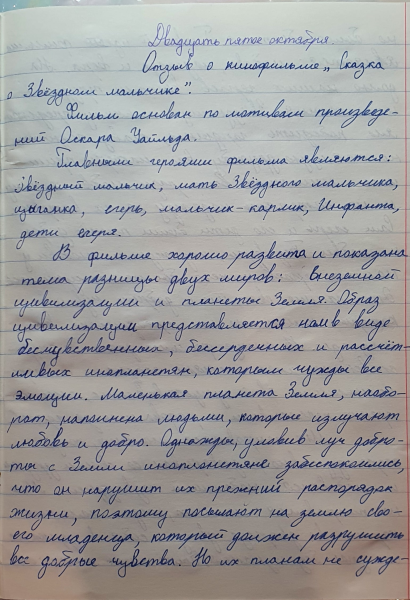 Двадцать пятое октября.
Отзыв о кинофильме „Сказка
о Звёздном мальчике".
Фильм основан по мотивам произведе-
ний Оскара Уайльда.
Главными героями фильма являются:
Звёздный мальчик, мать Звёздного мальчика,
цыганка, егерь, мальчик-карлик, Инфанта,
дети егеря.
В фильме хорошо развита и показана
тема разницы двух миров: внеземной
цивилизации и планеты Земля. Образ
цивилизации представляется нам в виде
бесчувственных, бессердечных и рассчёт-
ливых инопланетян, которым чужды все
эмоции. Маленькая планета Земля, наобо-
рот, наполнена людьми, которые излучают
любовь и добро. Однажды, уловив луч добро-
ты с Земли инопланетяне забеспокоились,
что он нарушит их прежний распорядок
жизни, поэтому посылают на землю сво-
его младенца, который должен разрушить
все добрые чувства. Но их планам не сужде-